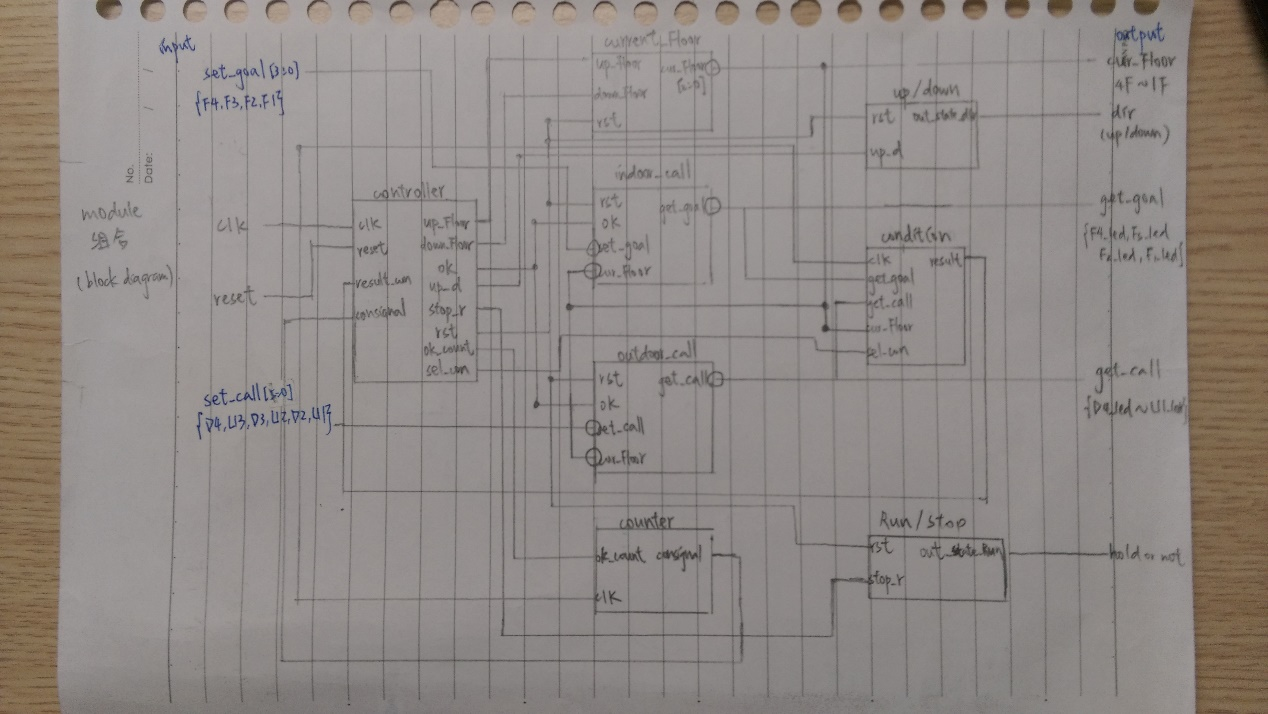 input
output
No.
Date: / /
set_goal [3:0]
{F4, F3, F2, F1}
module
(block diagram)
clk
reset
set_call [5:0]
{D4, U3, D3, U2, D2, U1}
controller
clk
reset
result_wn
consignal
up_Floor
down_Floor
ok
up_d
stop_r
rst
ok_count
sel_wn
current_Floor
up_Floor
down_Floor
rst
cur_Floor
[3:0]
indoor_call
rst
ok
set_goal
cur_Floor
get_goal
outdoor_call
rst
ok
set_call
cur_Floor
get_call
counter
ok_count
clk
consignal
up/down
rst
up_d
out_state_dir
condition
clk
get_goal
get_call
cur_Floor
sel_wn
result
Run/stop
rst
stop_r
out_state_Run
cur_Floor
4F ~ 1F
dir
(up/down)
get_goal
{F4_led, F3_led
F2_led, F1_led}
get_call
{D4_led ~ U1_led}
hold or not